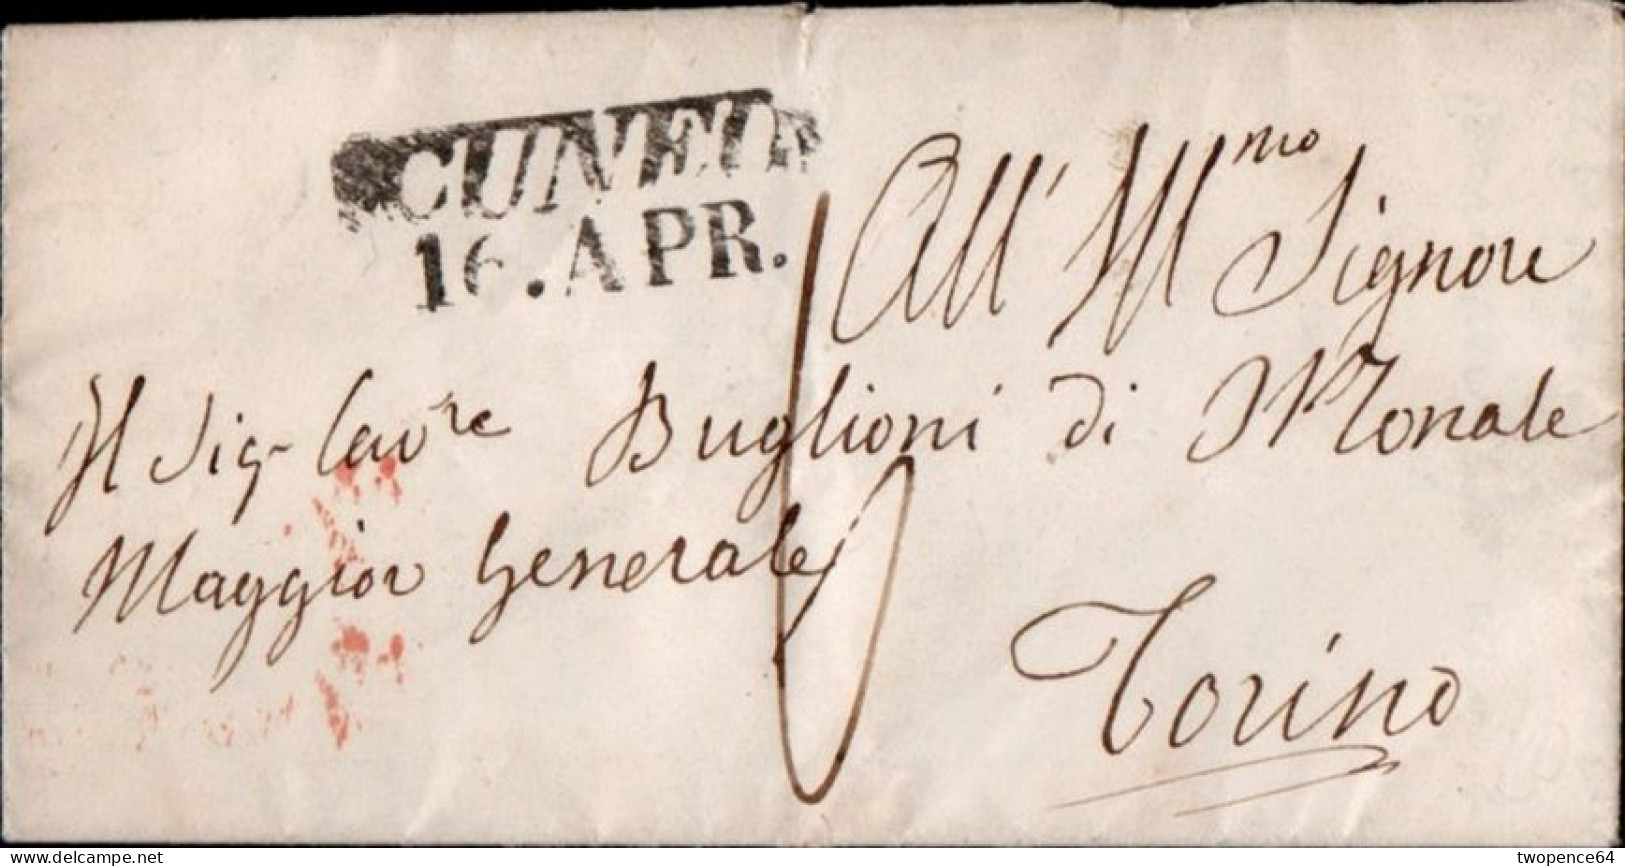 CUNEO
16.APR.
All' Ill^mo Signore
Il Sig- Cav^re Buglioni di Monale
Maggior Generale
Torino
delcampe.net
twopence64